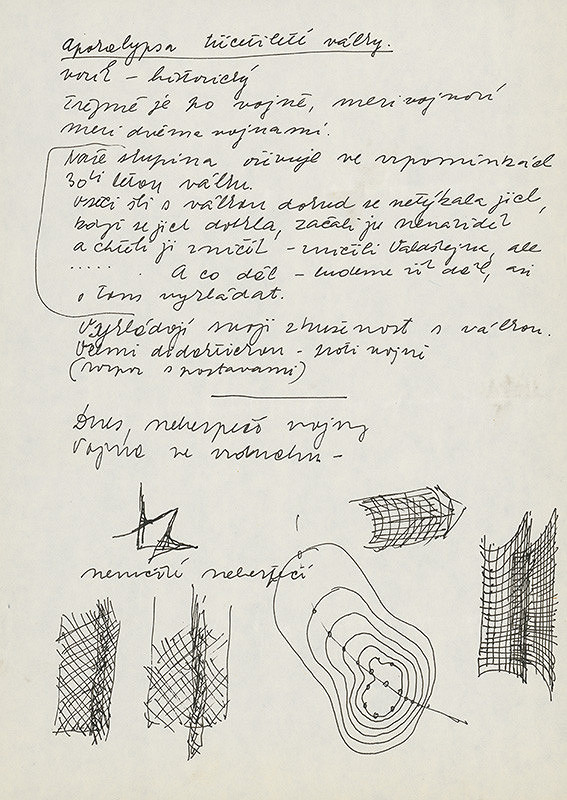 apokalypsa třicetileté války.
vozík – historický
Zřejmě je po vojně, mezivojnoví
mezi dvěma vojnami.
Naše skupina ožívuje ve vzpomínkách
30ti letou válku.
všeci šli s válkou dokud se netýkala jich,
když se jich dotkla, začali ju nenavidět
a chtěli ji zničit – zničili Valdštejna, ale
..... A co dál – budeme žít dál, asi
o tom vykládat.
Vykládají svoji zkušenost s válkou.
Velmi didaktickou – proti vojně
(rozpor s postavami)
Dnes, nebezpečí vojny
Vojna ve vzduchu –
nebezpečí